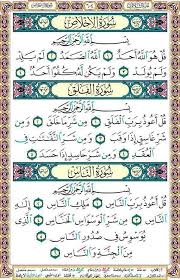 سُورَةُ الإِخْلَاصِ
بِسْمِ اللَّهِ الرَّحْمَٰنِ الرَّحِيمِ
قُلْ هُوَ اللَّهُ أَحَدٌ ۝ اللَّهُ الصَّمَدُ ۝ لَمْ يَلِدْ
وَلَمْ يُولَدْ ۝ وَلَمْ يَكُن لَّهُ كُفُوًا أَحَدٌ ۝
سُورَةُ الْفَلَقِ
بِسْمِ اللَّهِ الرَّحْمَٰنِ الرَّحِيمِ
قُلْ أَعُوذُ بِرَبِّ الْفَلَقِ ۝ مِن شَرِّ مَا خَلَقَ ۝ وَمِن
شَرِّ غَاسِقٍ إِذَا وَقَبَ ۝ وَمِن شَرِّ النَّفَّاثَاتِ فِي
الْعُقَدِ ۝ وَمِن شَرِّ حَاسِدٍ إِذَا حَسَدَ ۝
سُورَةُ النَّاسِ
بِسْمِ اللَّهِ الرَّحْمَٰنِ الرَّحِيمِ
قُلْ أَعُوذُ بِرَبِّ النَّاسِ ۝ مَلِكِ النَّاسِ ۝
إِلَٰهِ النَّاسِ ۝ مِن شَرِّ الْوَسْوَاسِ الْخَنَّاسِ ۝ الَّذِي
يُوَسْوِسُ فِي صُدُورِ النَّاسِ ۝
مِنَ الْجِنَّةِ وَالنَّاسِ ۝